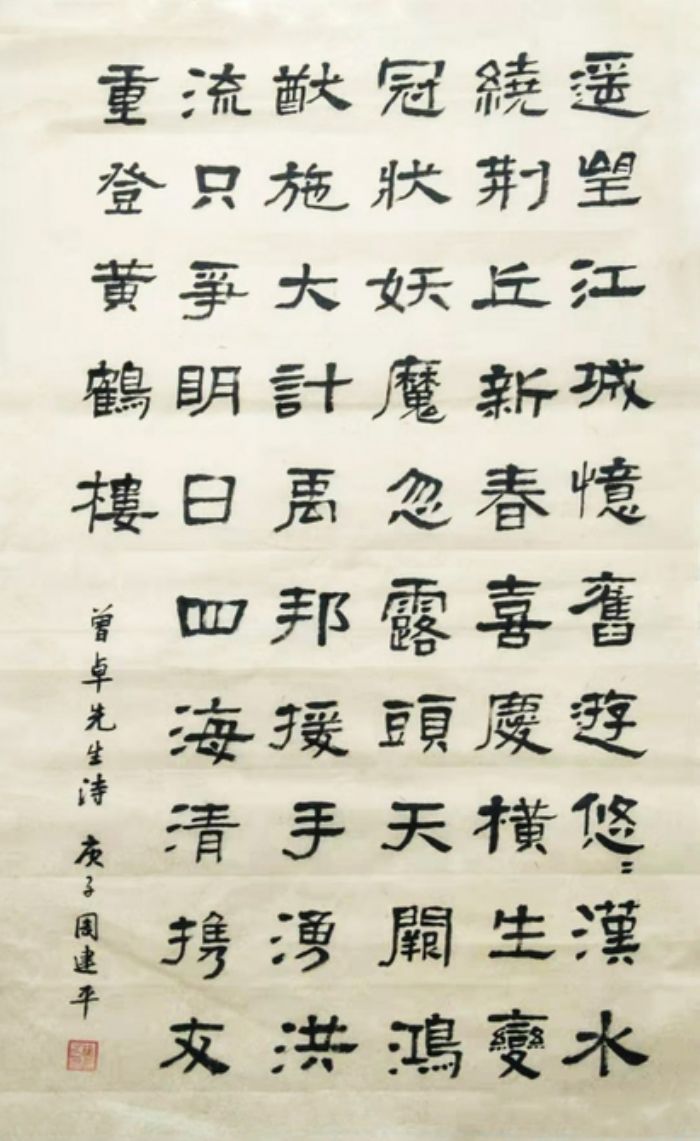 遥望江城憶舊遊悠〻漢水
繞荆丘新春喜慶橫生變
冠狀妖魔忽露頭天闕鴻
猷施大計禹邦援手湧洪
流只爭明日四海清携友
重登黄鶴樓
曾卓先生诗 庚子周建平